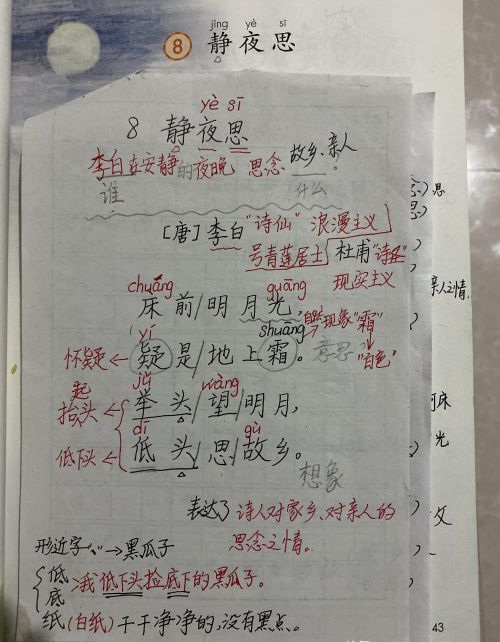 jìng yè sī
8 静夜思
yè sī
8 静夜思
李白在安静的夜晚 思念故乡、亲人。
谁 什么
[唐]李白"诗仙" 浪漫主义
号青莲居士 杜甫"诗圣"
现实主义
chuáng guāng
床前/明月光,
yí shuāng 自然现象"霜"
怀疑←疑是/地上霜。意思 "白色"
jǔ wàng
抬起头←举头/望/明月,
dī gù
低下头←低头/思/故乡。
想象
表达了诗人对家乡、对亲人的
思念之情。
形近字"、"→黑瓜子
低
底
>我低下头捡底下的黑瓜子。
纸(白纸)干干净净的,没有黑点。
思
亲人之情
床
光
43